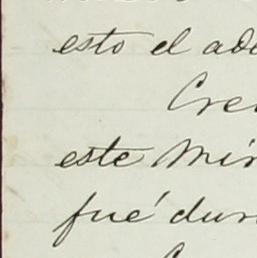 esto el ade
Cre
este Min
fué dur